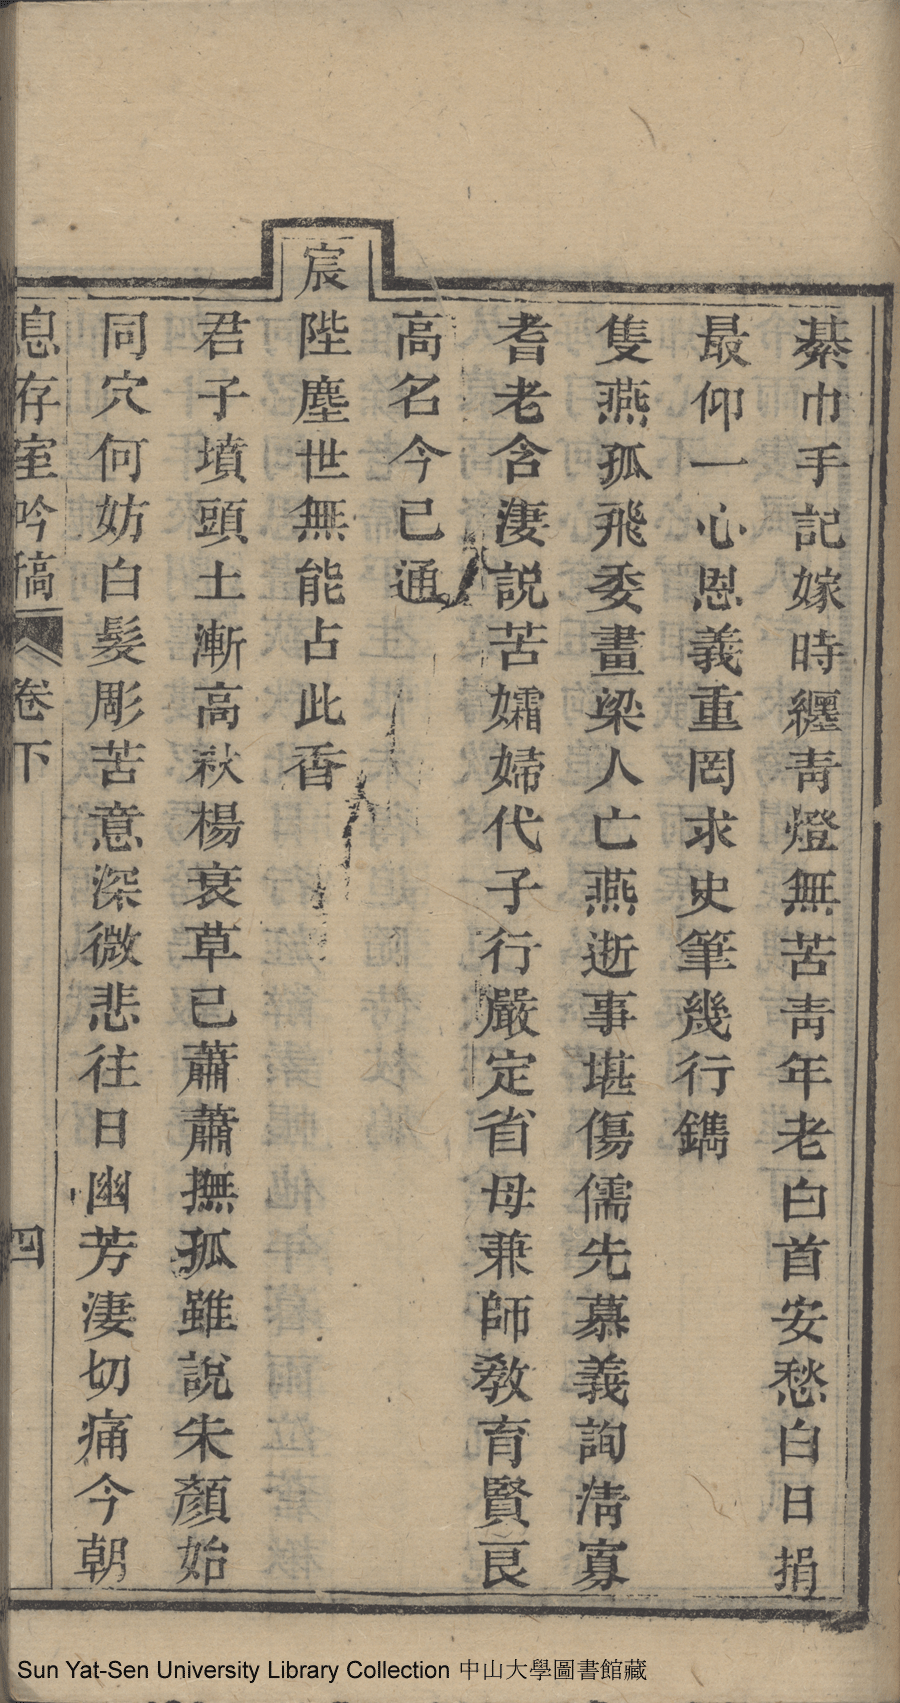 綦巾手記嫁時纒青燈無苦青年老白首安愁白日捐
最仰一心恩義重罔求史筆幾行鐫
隻燕孤飛委畫梁人亡燕逝事堪傷儒先慕義詢清寡
耆老含淒説苦孀婦代子行嚴定省母兼師教育賢良
高名今已通
宸
陛塵世無能占此香
君子墳頭土漸高秋楊衰草已蕭蕭撫孤雖説朱顏始
同穴何妨白髮彫苦意深微悲往日幽芳淒切痛今朝
息存室吟稿 卷下 四
Sun Yat-Sen University Library Collection 中山大學圖書館藏